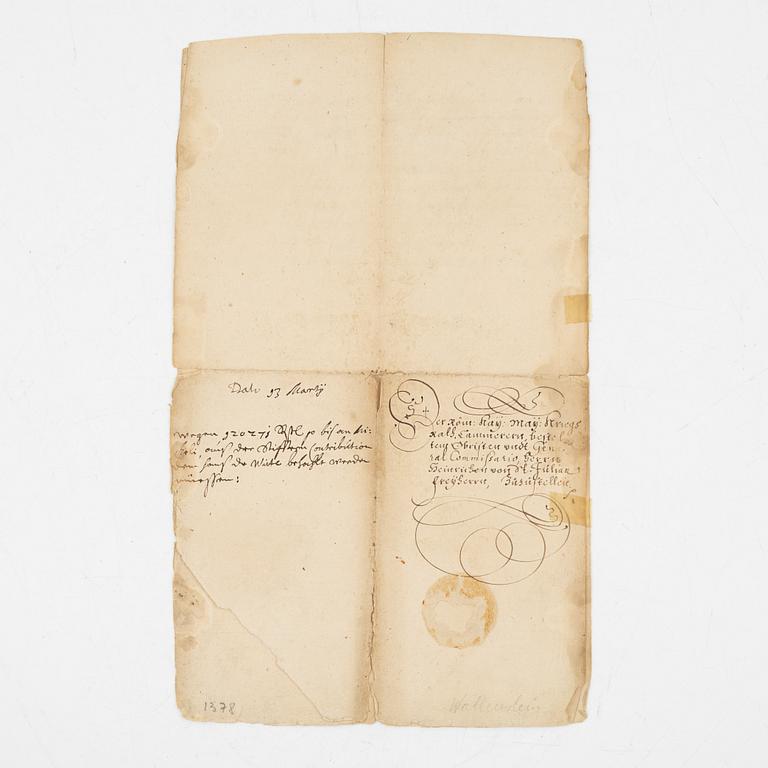 Dat: 13 Martij
wegen 120271 Rstl
aus der Stifftern Contribution
dem hans de Witte bezahlt werden
müessen:
Der Röm: Kay: May: Kriegs
Rath, Cammerern, bestel
ten Obristen vndt Gene
ral Commissario, Herrn
Heinrichen von St. Julian
freyherrn, Zuzustellen
1378
Wallenstein